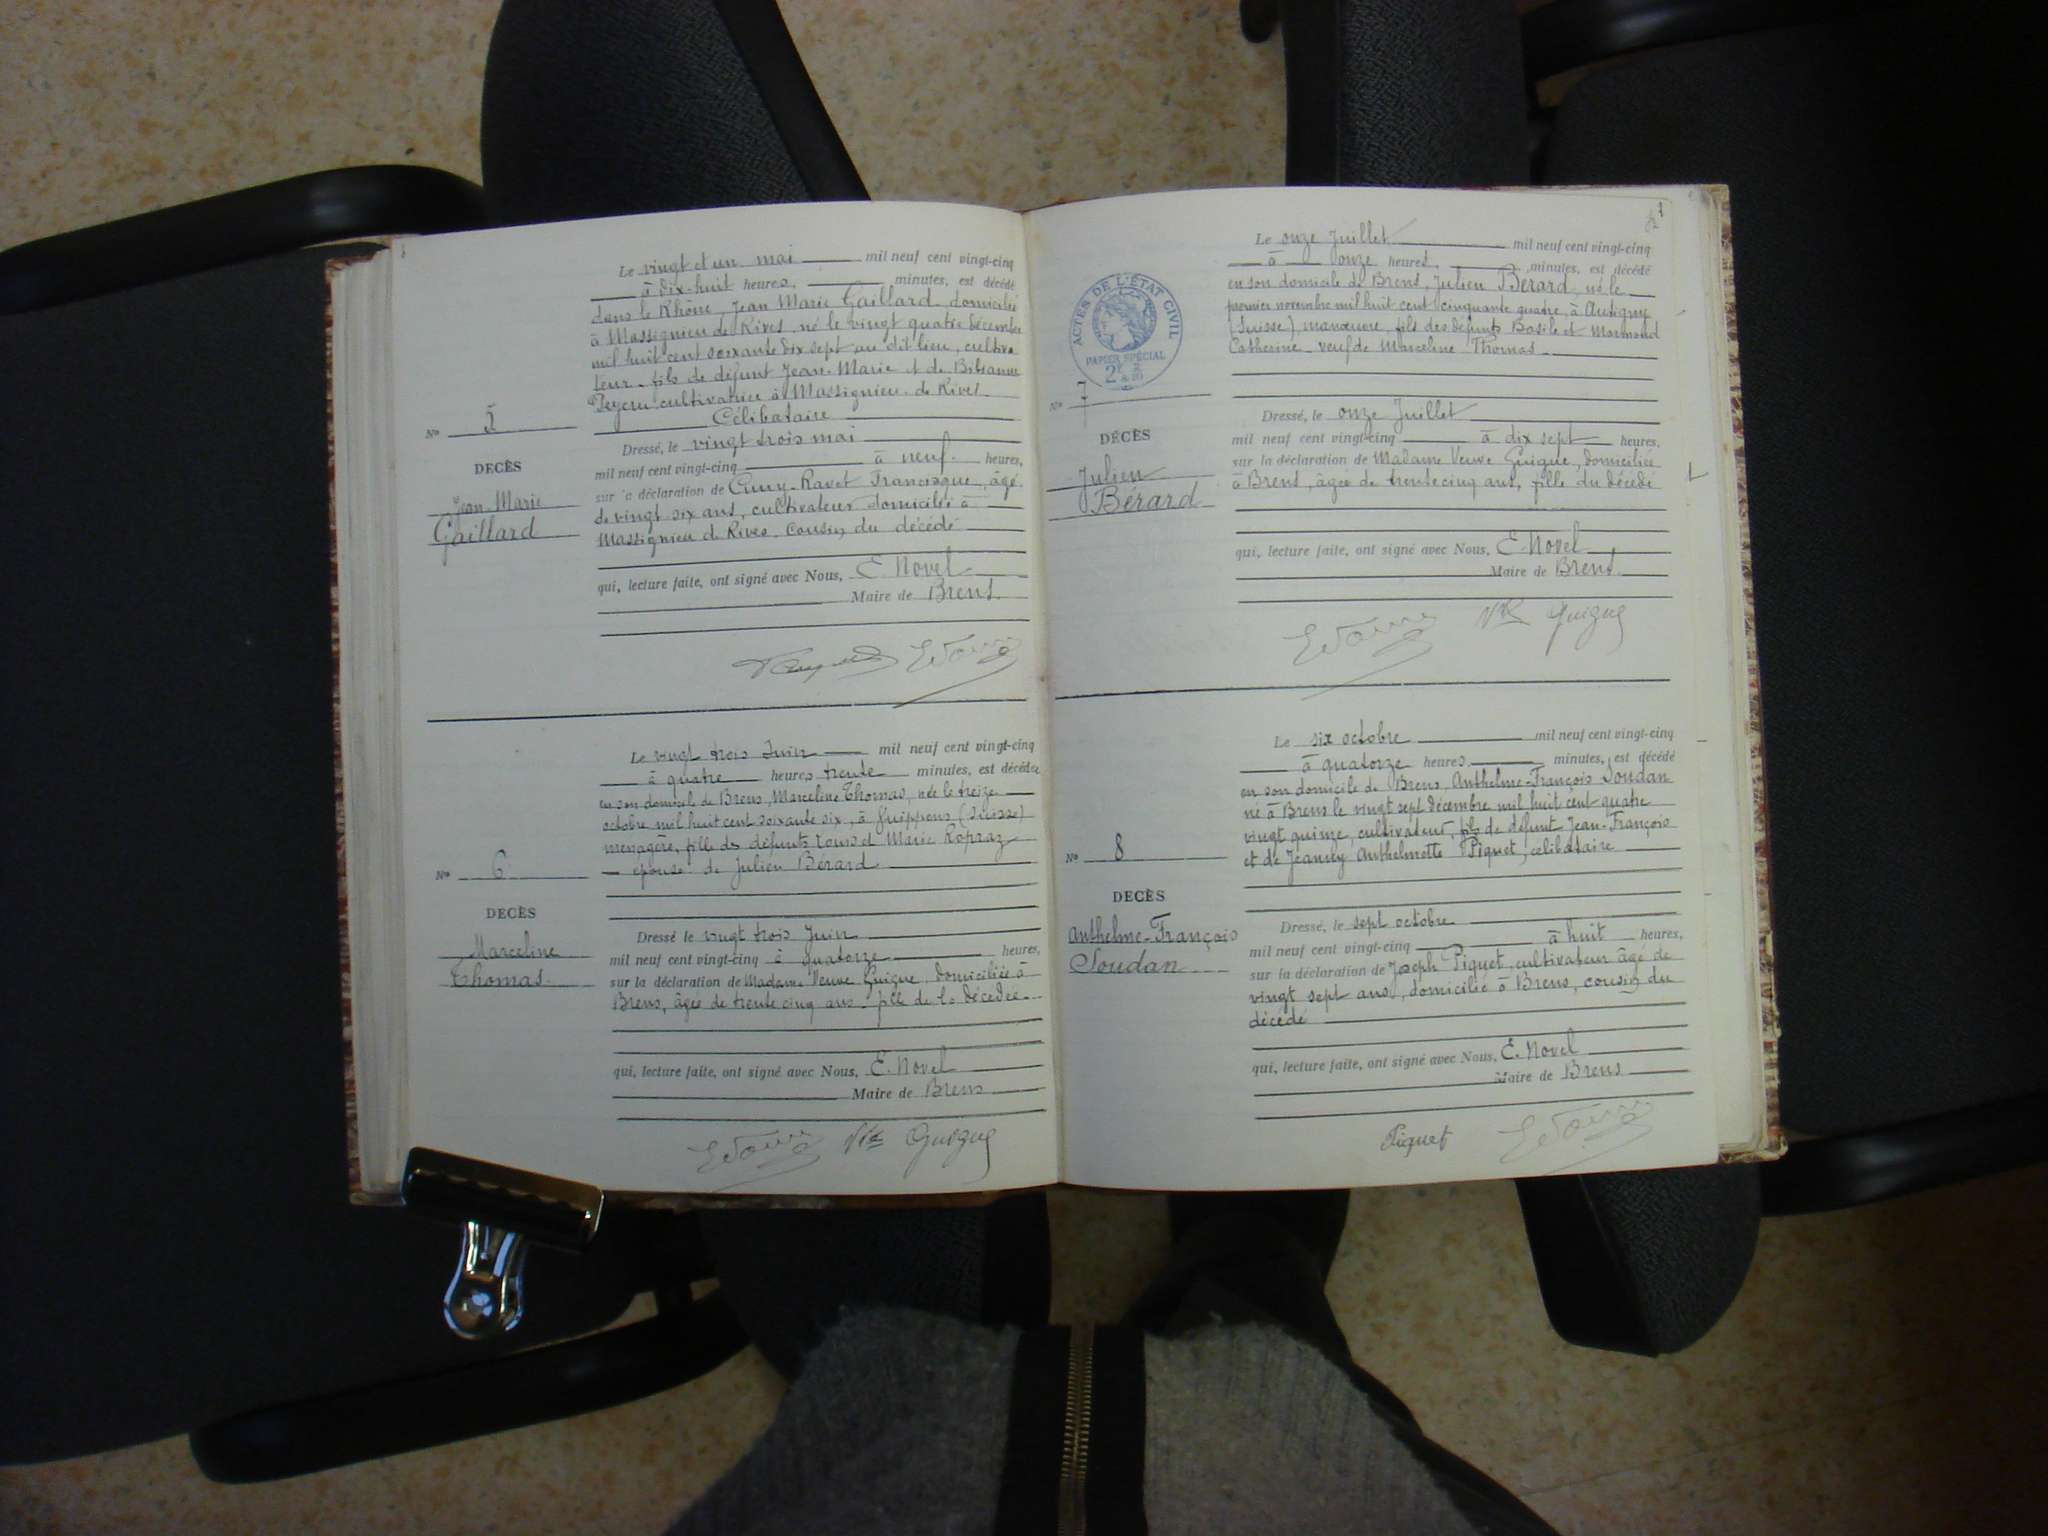 Le vingt et un mai mil neuf cent vingt-cinq
à dix-huit heures, minutes, est décédé
dans le Rhône, Jean Marie Gaillard domicilié
à Massignieu de Rives né le vingt quatre décembre
mil huit cent soixante dix sept au dit lieu, cultiva
teur fils de défunt Jean-Marie et de
cultivatrice à Massignieu de Rives
Célibataire
Nº 5
DECÈS
Jean Marie
Gaillard
Dressé, le vingt trois mai
mil neuf cent vingt-cinq à neuf heures,
sur la déclaration de Cuny-Ravet Francisque, âgé
de vingt six ans, cultivateur domicilié à
Massignieu de Rives cousin du décédé
qui, lecture faite, ont signé avec Nous, E. Novel
Maire de Brens
Le vingt trois Juin mil neuf cent vingt-cinq
à quatre heures trente minutes, est décédée
en son domicile de Brens, Marceline Thomas, née le treize
octobre mil huit cent soixante six, à (Suisse)
ménagère, fille des défunts Louis et Marie Ropraz
épouse de Julien Bérard
Nº 6
DECÈS
Marceline
Thomas
Dressé le vingt trois Juin
mil neuf cent vingt-cinq à quatorze heures,
sur la déclaration de Madame Veuve Guigue, domiciliée à
Brens, âgée de trente cinq ans fille de la décédée
qui, lecture faite, ont signé avec Nous, E. Novel
Maire de Brens
Vve Guigue
Le onze Juillet mil neuf cent vingt-cinq
à onze heures, minutes, est décédé
en son domicile de Brens, Julien Bérard, né le
premier novembre mil huit cent cinquante quatre, à Autigny
(Suisse), manœuvre, fils des défunts Basile et Marmoud
Catherine veuf de Marceline Thomas
ACTES DE L'ÉTAT CIVIL
PAPIER SPÉCIAL
Nº 7
DÉCÈS
Julien
Bérard
Dressé, le onze Juillet
mil neuf cent vingt-cinq à dix sept heures,
sur la déclaration de Madame Veuve Guigue, domiciliée
à Brens, âgée de trente cinq ans, fille du décédé
qui, lecture faite, ont signé avec Nous, E. Novel
Maire de Brens
Vve Guigue
Le six octobre mil neuf cent vingt-cinq
à quatorze heures, minutes, est décédé
en son domicile de Brens, Anthelme-François Soudan
né à Brens le vingt sept décembre mil huit cent quatre
vingt quinze, cultivateur, fils de défunt Jean-François
et de Jeancy Anthelmette Piquet, célibataire
Nº 8
DECÈS
Anthelme-François
Soudan
Dressé, le sept octobre
mil neuf cent vingt-cinq à huit heures,
sur la déclaration de Joseph Piquet, cultivateur âgé de
vingt sept ans, domicilié à Brens, cousin du
décédé
qui, lecture faite, ont signé avec Nous, E. Novel
Maire de Brens
Piquet